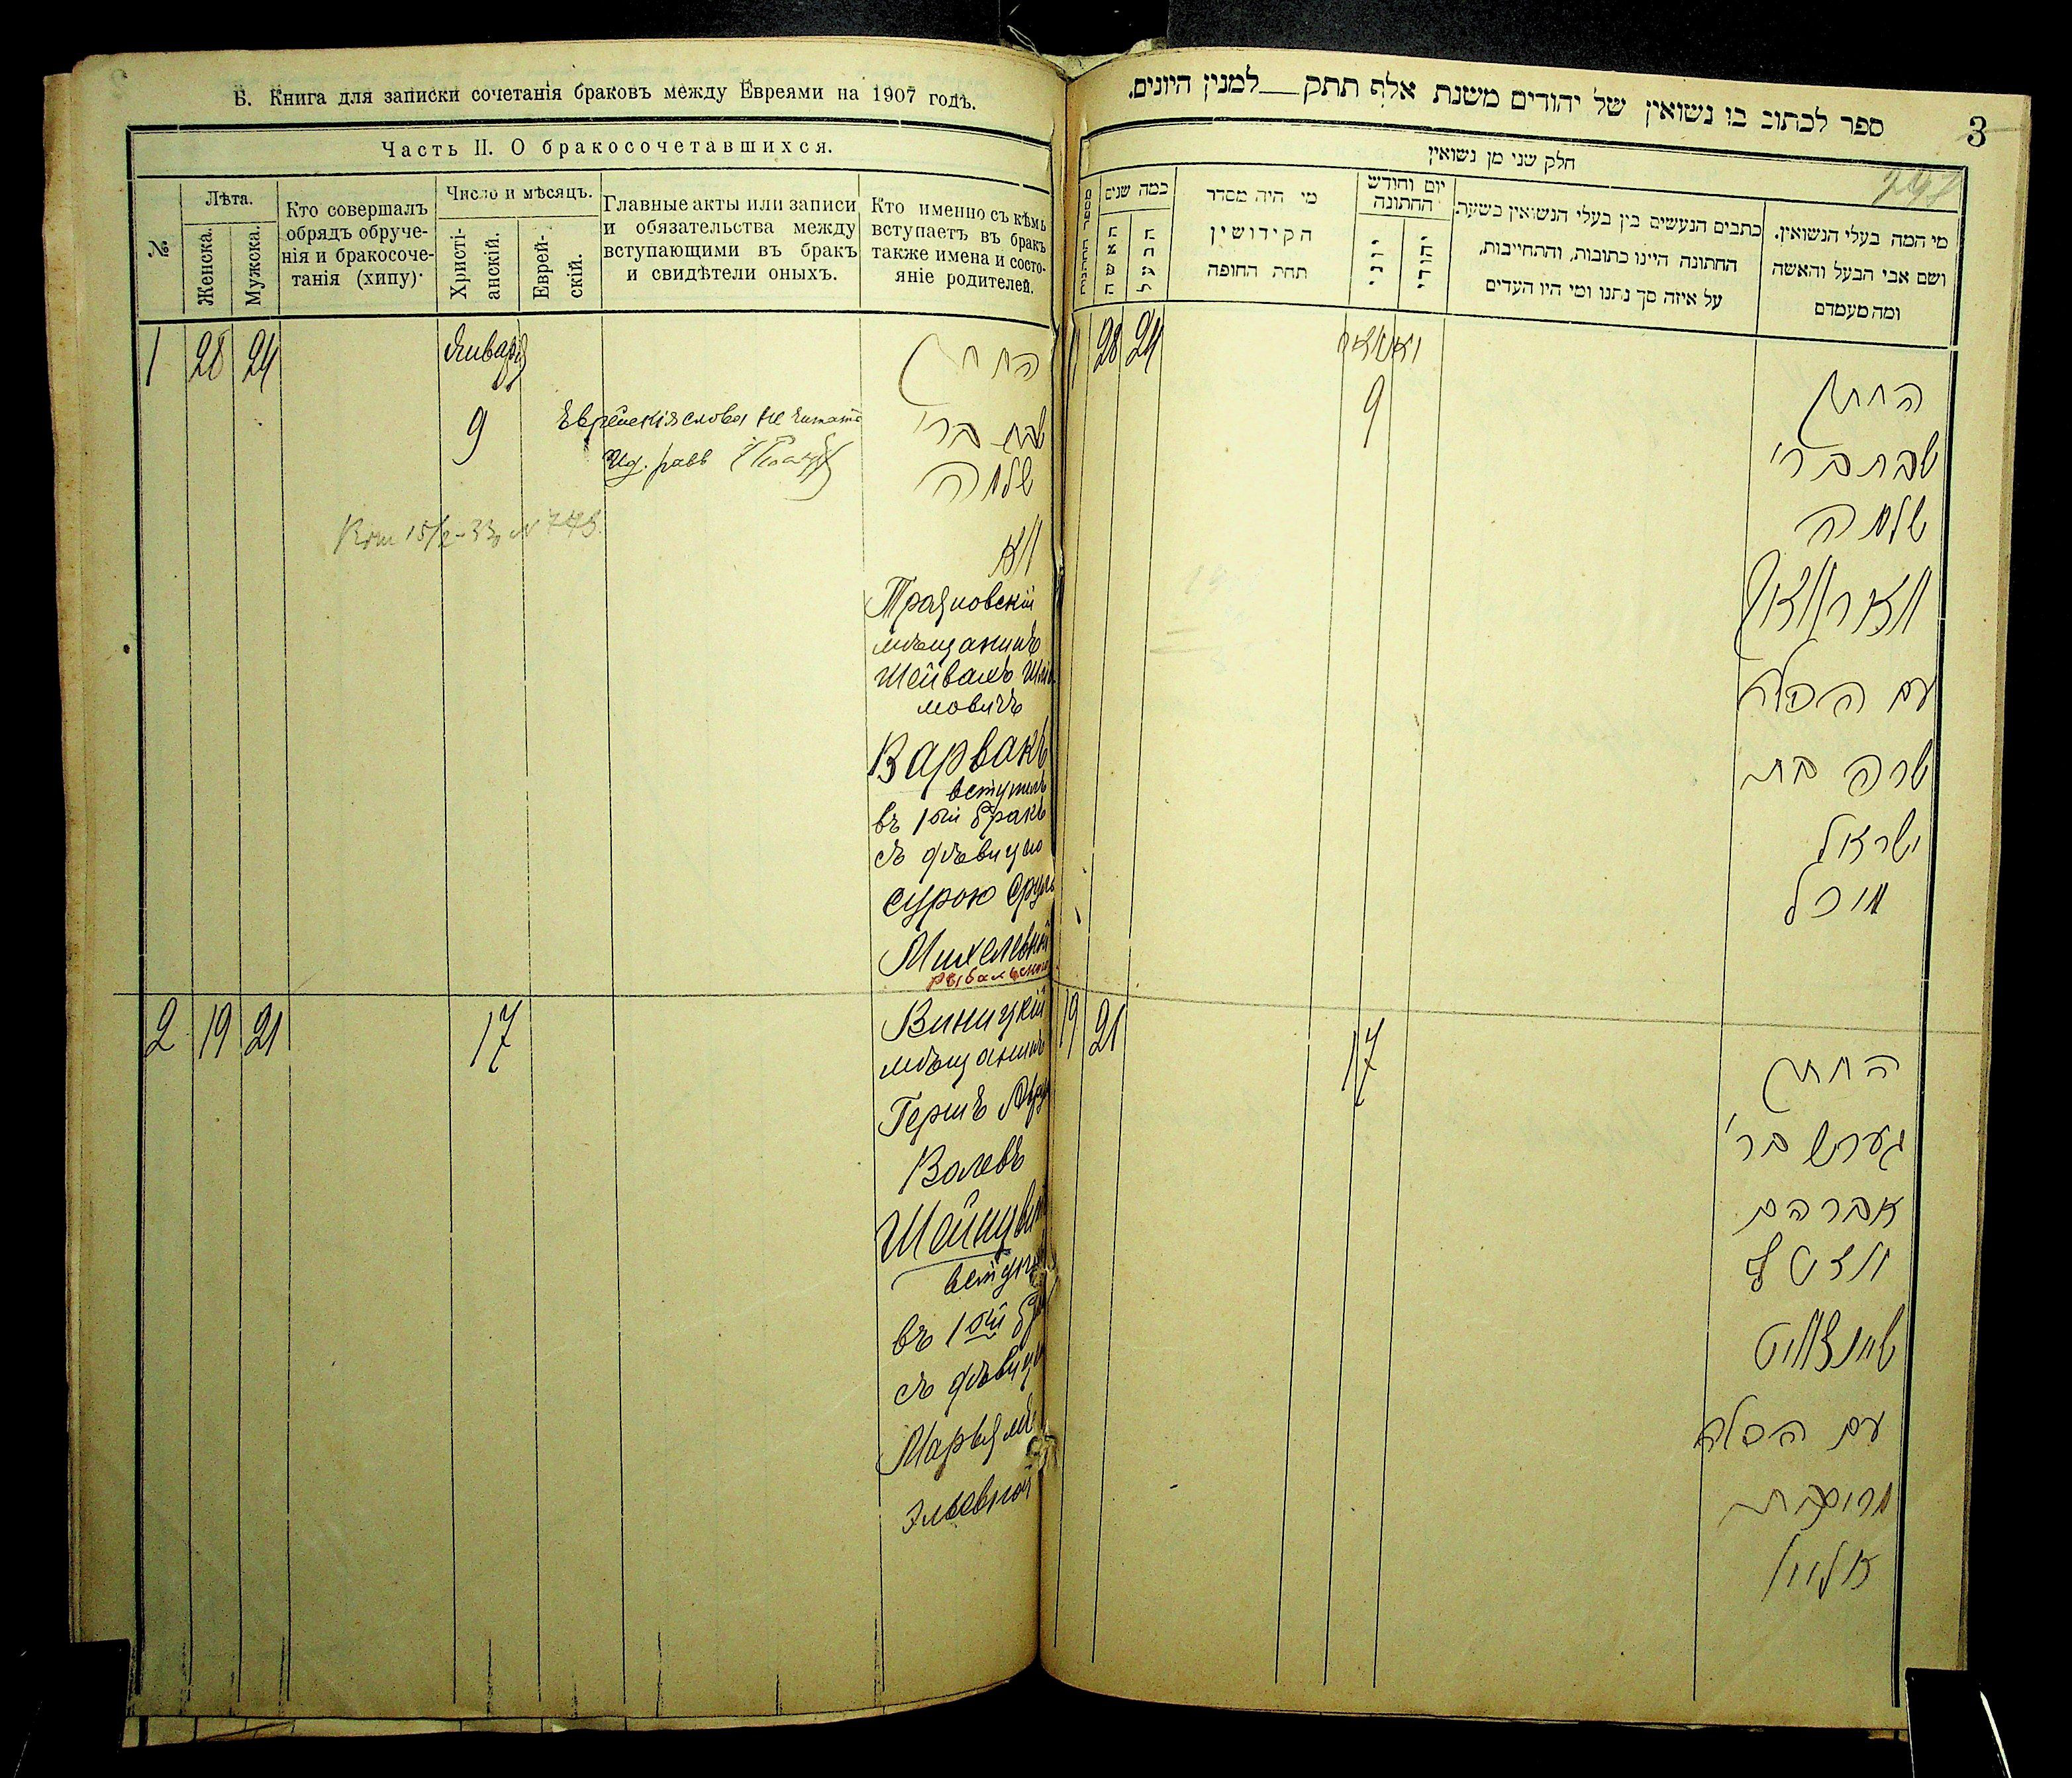 Б. Книга для записки сочетанія браковъ между Евреями на 1907 годъ.
Часть II. О бракосочетавшихся.
№
Лѣта.
Женска.
Мужска.
Кто совершалъ
обрядъ обруче-
нія и бракосоче-
танія (хипу)·
Число и мѣсяцъ.
Христі-
анскій.
Еврей-
скій.
Главные акты или записи
и обязательства между
вступающими въ бракъ
и свидѣтели оныхъ.
Кто именно съ кѣмъ
вступаетъ въ бракъ
также имена и состо-
яніе родителей.
1 28 24 Января
9
Еврейскія слова не читать
החתן
שבת ברי
שלמה
Траяновскій
мѣщанинъ
Шейвахъ
мовичъ
Варвакъ
вступилъ
въ 1ый бракъ
съ дѣвицею
Сурою Сруль
Михелевной
Рыбальской
2 19 21 17
Виницкій
мѣщанинъ
Гершъ
Волевъ
въ 1ый
съ дѣвицею
Марьямъ
Эльевной
ספר לכתוב בו נשואין של יהודים משנת אלף תתק למנין היונים.
3
חלק שני מן נשואין
מספר החתונות
כמה שנים
האשה
הבעל
מי היה מסדר
הקידושין
תחת החופה
יום וחודש
החתונה
יוני
יהודי
כתבים הנעשים בין בעלי הנשואין בשעת
החתונה היינו כתובות, והתחייבות,
על איזה סך נתנו ומי היו העדים
מי המה בעלי הנשואין.
ושם אבי הבעל והאשה
ומה מעמדם
1 28 24
9
החתן
שבת ברי
שלמה
ווארוואק
עם הכלה
שרה בת
ישראל
מיכל
19 21 17
החתן
גערש בר'
אברהם
וואלף
שיינצוויט
עם הכלה
מרים בת